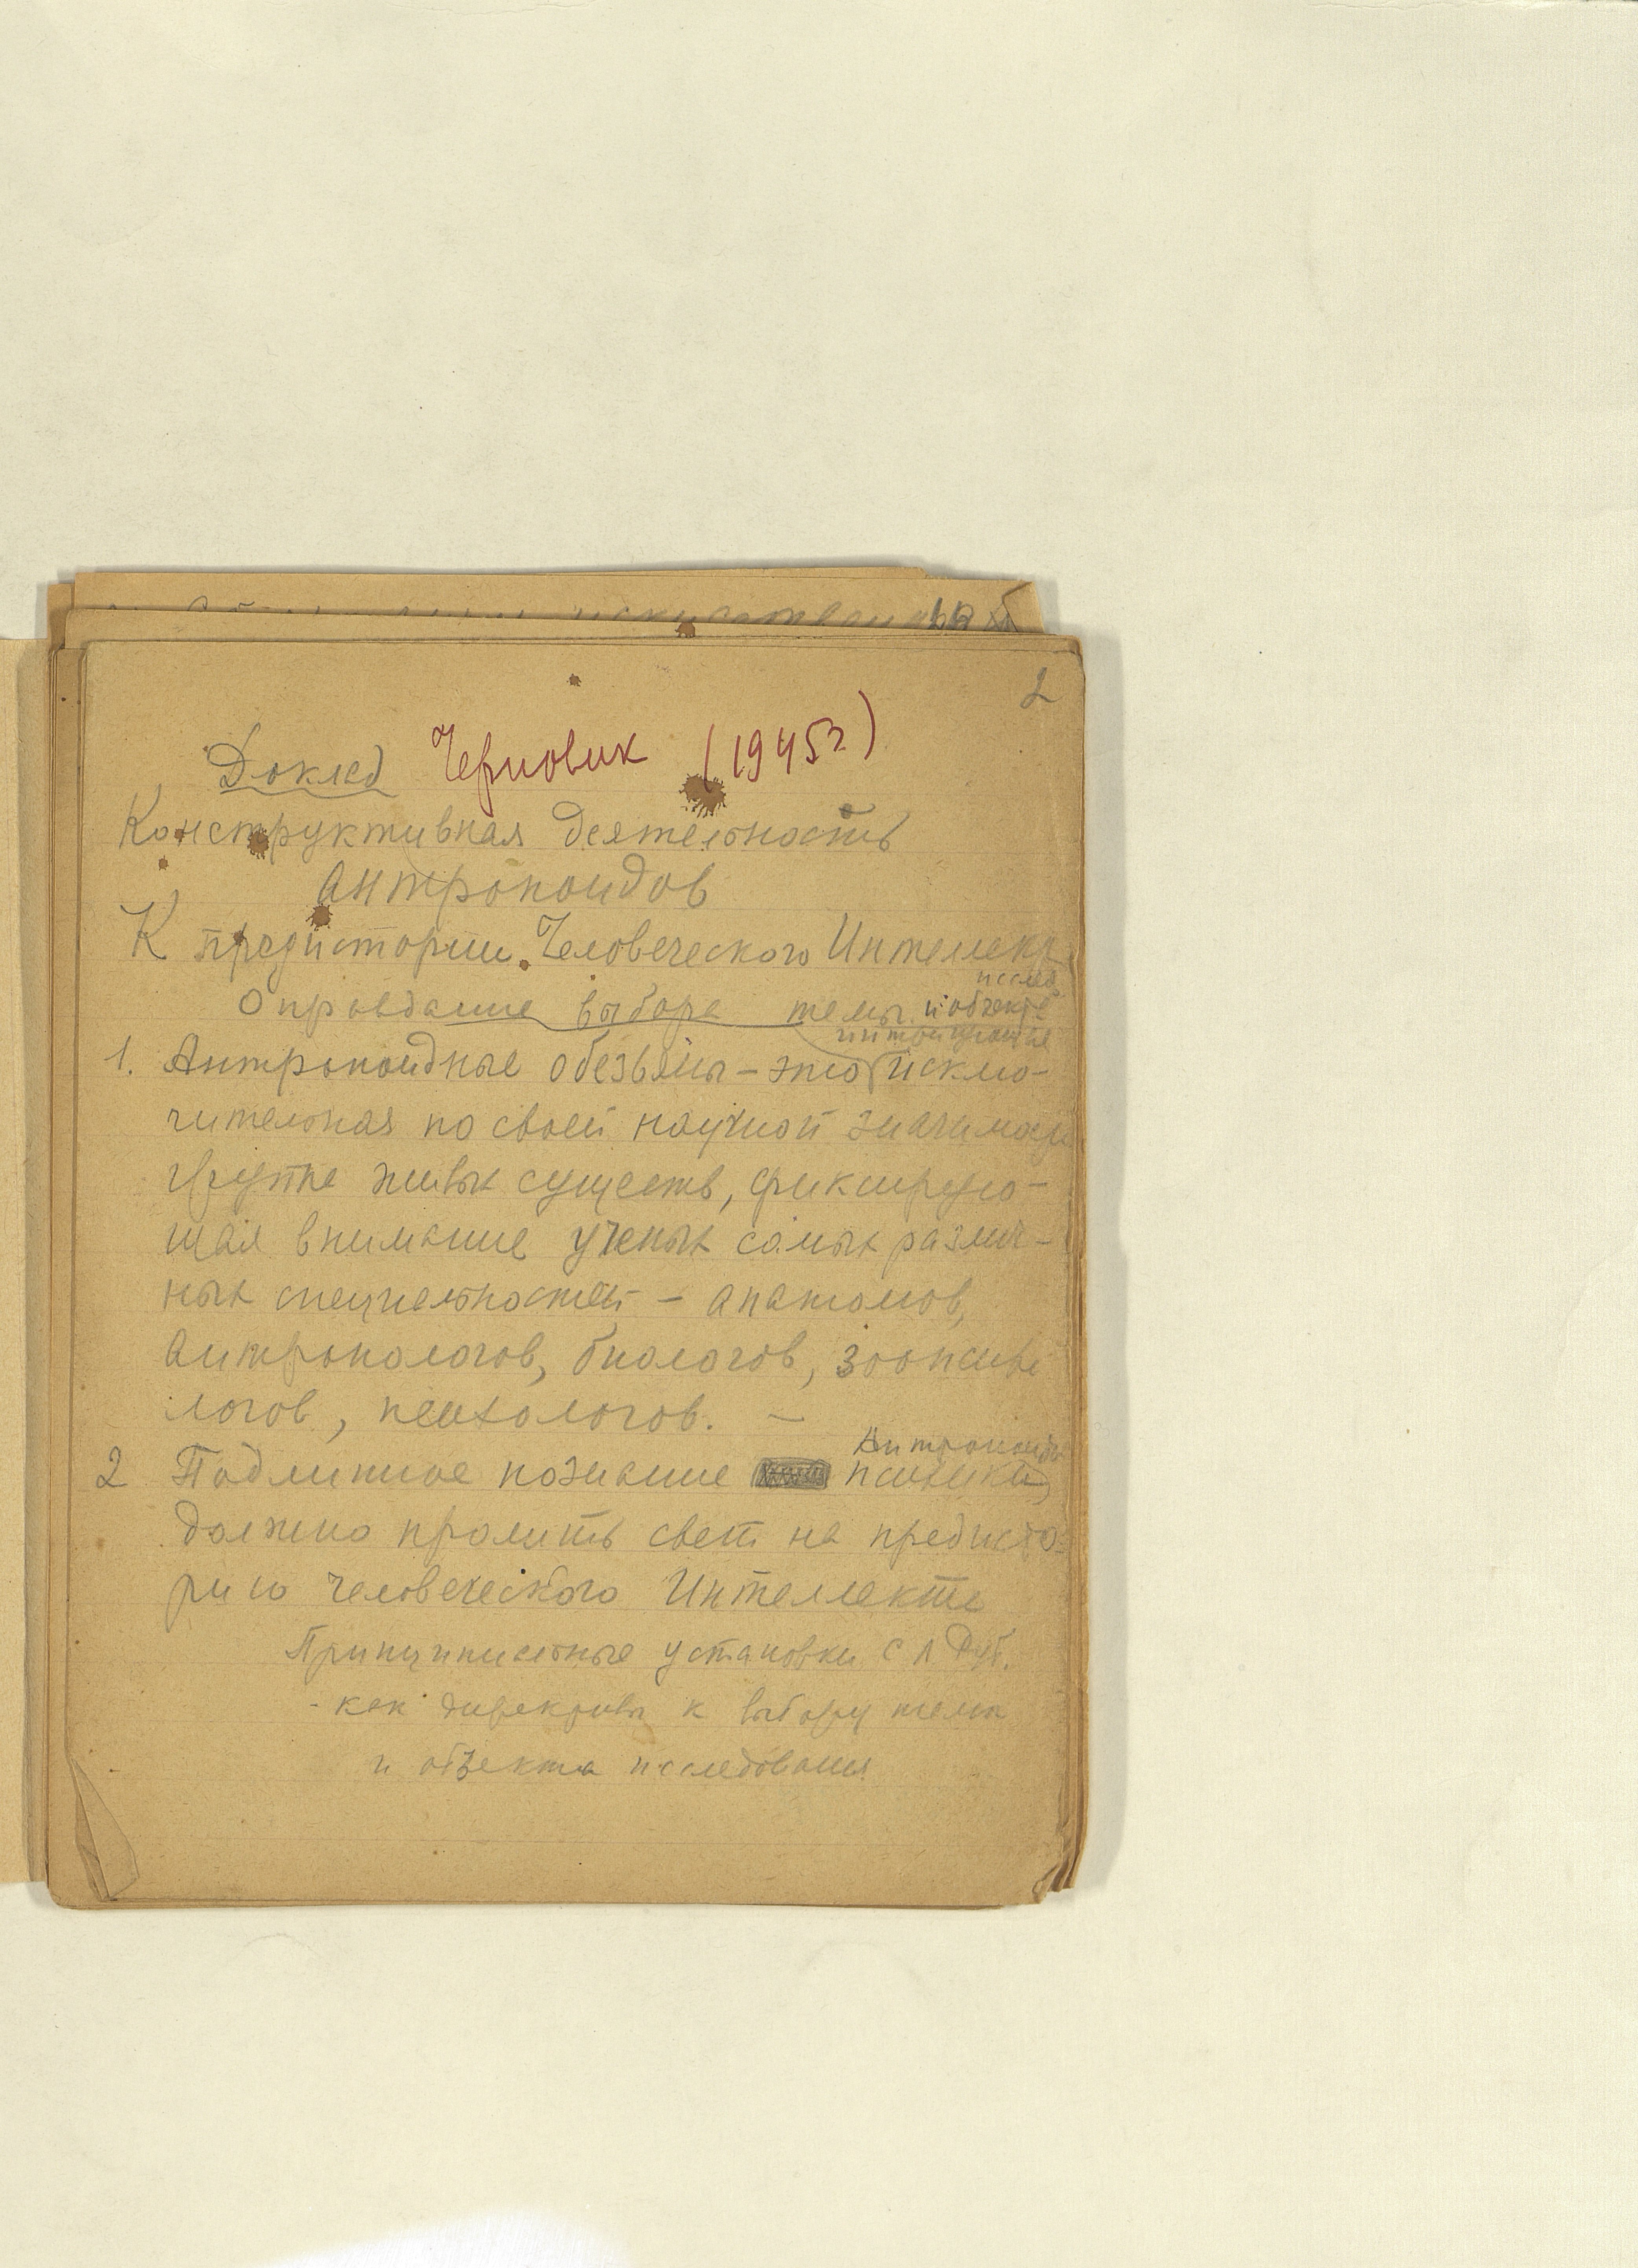 2
Доклад Черновик (1945г)
Конструктивная деятельность
Антропоидов
К предистории Человеческого Интеллект
исслед.
Оправдание выбора темы и объекта
1. Антропоидные обезьяны – это исклю-
чительная по своей научной значимости
группа живых существ, фиксирую-
щая внимание ученых самых различ-
ных специальностей – анатомов,
антропологов, биологов, зоопсихо
логов, психологов. –
Антропоидов
2 Подлинное познание психики
должно пролить свет на предисто-
рию человеческого Интеллекта
Принципиальные установки С Л Руб.
- как директивы к выбору темы
и объекта исследования